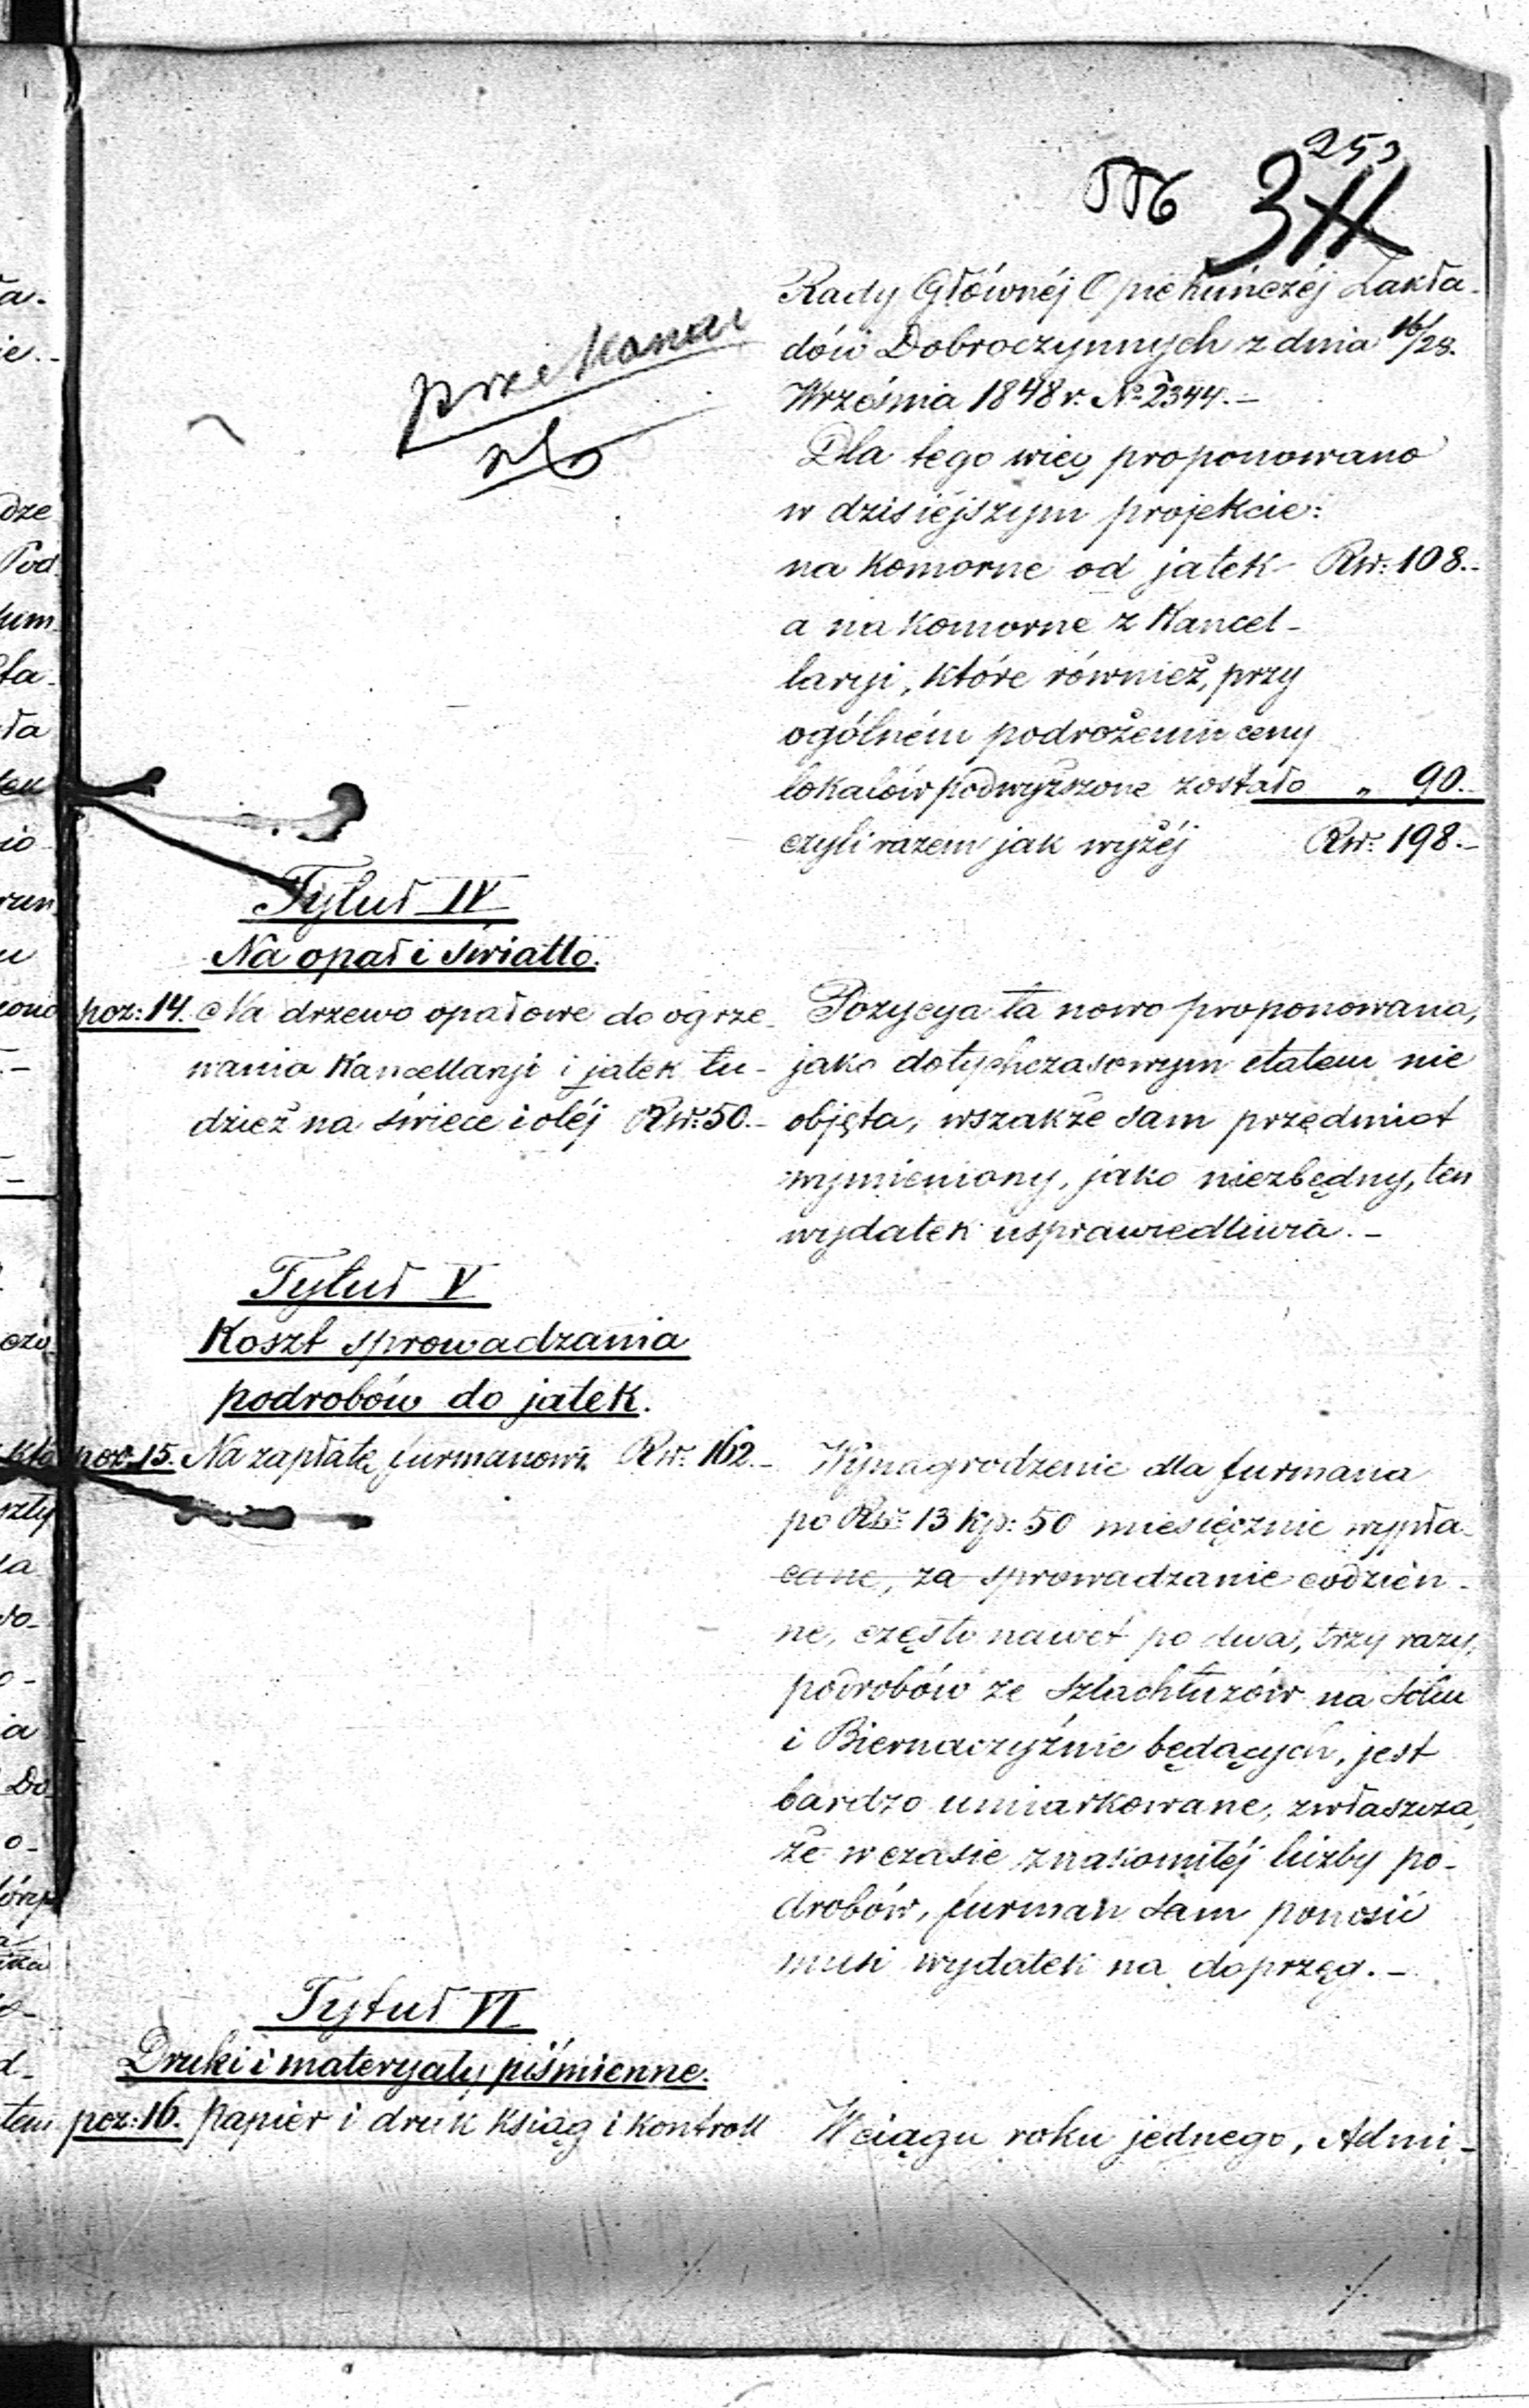 253
Rady Głównéj Opiekuńczéj Zakła-
dów Dobroczynnych z dnia 16/28.
Września 1848 r. № 2344.-
Dla tego więc proponowano
w dzisiejszym projekcie:
na komorne od jatek Rsr: 108.-
a na komorne z Kancel-
laryi, które również, przy
ogólném podrożeniu ceny
lokalów podwyższone zostało „ 90.-
czyli razem jak wyżéj Rsr: 198.-
Tytuł IV
Na opał i światło.
poz: 14. Na drzewo opałowe do ogrze-
wania Kancellaryi i jatek tu-
dzież na świece i oléj Rsr: 50.-
Pozycya ta nowo proponowana,
jako dotychczasowym etatem nie
objęta, wszakże sam przedmiot
wymieniony, jako niezbędny, ten
wydatek usprawiedliwia.-
Tytuł V
Koszt sprowadzania
podrobów do jatek.
poz: 15. Na zapłatę furmanowi Rsr: 162.-
Wynagrodzenie dla furmana
po Rsr: 13 kp: 50 miesięcznie wypła-
cane, za sprowadzanie codzien-
ne, często nawet po dwa, trzy razy,
podrobów ze szlachtuzów na Solcu
i Biernaczyźnie będących, jest
bardzo umiarkowane, zwłaszcza,
że w czasie znakomitéj liczby po-
drobów, furman sam ponosić
musi wydatek na doprzęg.-
Tytuł VI
Druki i materyały piśmienne.
poz: 16. Papier i druk ksiąg i kontroll
W ciągu roku jednego, Admi-